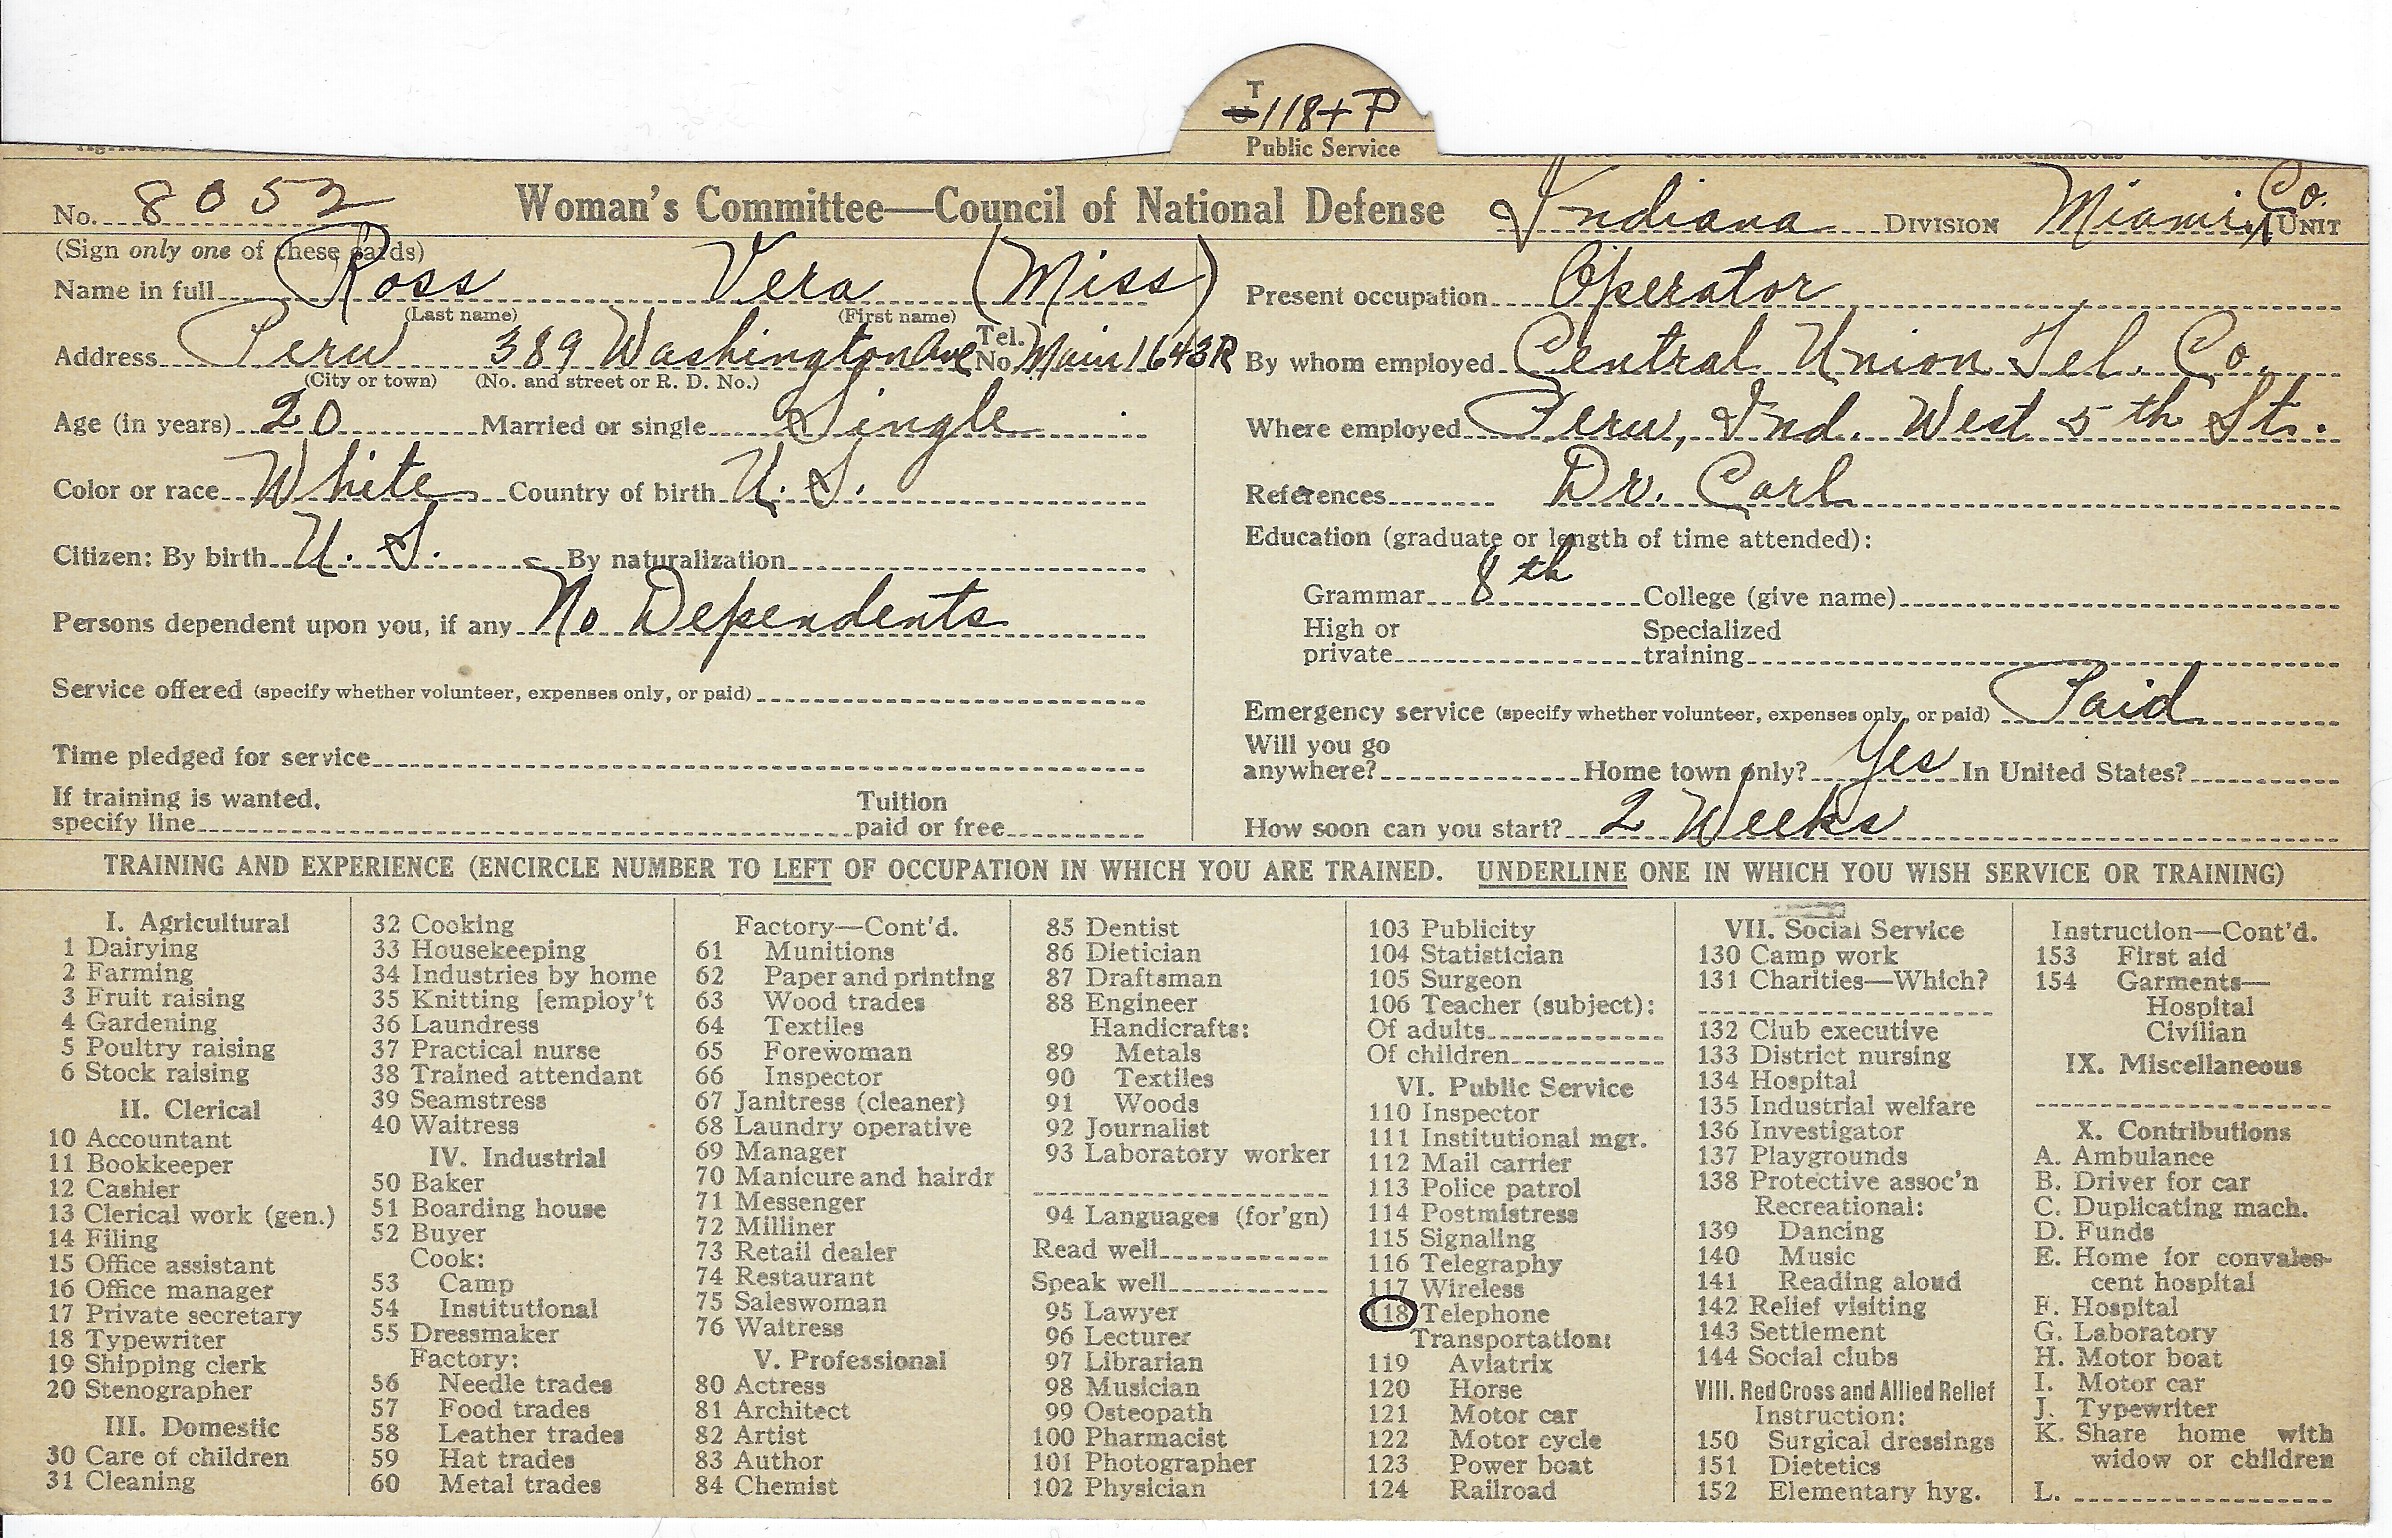 T
118+P
Public Service
No. 8052 Woman's Committee—Council of National Defense Indiana DIVISION Miami Co. UNIT
(Sign only one of these cards)
Name in full Ross Vera (Miss)
(Last name) (First name)
Address Peru 389 Washington Ave Tel. No. Main 1643R
(City or town) (No. and street or R. D. No.)
Age (in years) 20 Married or single Single
Color or race White Country of birth U. S.
Citizen: By birth U. S. By naturalization
Persons dependent upon you, if any No Dependents
Service offered (specify whether volunteer, expenses only, or paid)
Time pledged for service
If training is wanted, Tuition
specify line paid or free
Present occupation Operator
By whom employed Central Union Tel. Co.
Where employed Peru, Ind. West 5th St.
References Dr. Carl
Education (graduate or length of time attended):
Grammar 8th College (give name)
High or Specialized
private training
Emergency service (specify whether volunteer, expenses only, or paid) Paid
Will you go
anywhere? Home town only? Yes In United States?
How soon can you start? 2 Weeks
TRAINING AND EXPERIENCE (ENCIRCLE NUMBER TO LEFT OF OCCUPATION IN WHICH YOU ARE TRAINED. UNDERLINE ONE IN WHICH YOU WISH SERVICE OR TRAINING)
I. Agricultural
1 Dairying
2 Farming
3 Fruit raising
4 Gardening
5 Poultry raising
6 Stock raising
II. Clerical
10 Accountant
11 Bookkeeper
12 Cashier
13 Clerical work (gen.)
14 Filing
15 Office assistant
16 Office manager
17 Private secretary
18 Typewriter
19 Shipping clerk
20 Stenographer
III. Domestic
30 Care of children
31 Cleaning
32 Cooking
33 Housekeeping
34 Industries by home
35 Knitting [employ't
36 Laundress
37 Practical nurse
38 Trained attendant
39 Seamstress
40 Waitress
IV. Industrial
50 Baker
51 Boarding house
52 Buyer
Cook:
53 Camp
54 Institutional
55 Dressmaker
Factory:
56 Needle trades
57 Food trades
58 Leather trades
59 Hat trades
60 Metal trades
Factory—Cont'd.
61 Munitions
62 Paper and printing
63 Wood trades
64 Textiles
65 Forewoman
66 Inspector
67 Janitress (cleaner)
68 Laundry operative
69 Manager
70 Manicure and hairdr
71 Messenger
72 Milliner
73 Retail dealer
74 Restaurant
75 Saleswoman
76 Waitress
V. Professional
80 Actress
81 Architect
82 Artist
83 Author
84 Chemist
85 Dentist
86 Dietician
87 Draftsman
88 Engineer
Handicrafts:
89 Metals
90 Textiles
91 Woods
92 Journalist
93 Laboratory worker
94 Languages (for'gn)
Read well
Speak well
95 Lawyer
96 Lecturer
97 Librarian
98 Musician
99 Osteopath
100 Pharmacist
101 Photographer
102 Physician
103 Publicity
104 Statistician
105 Surgeon
106 Teacher (subject):
Of adults
Of children
VI. Public Service
110 Inspector
111 Institutional mgr.
112 Mail carrier
113 Police patrol
114 Postmistress
115 Signaling
116 Telegraphy
117 Wireless
118 Telephone
Transportation:
119 Aviatrix
120 Horse
121 Motor car
122 Motor cycle
123 Power boat
124 Railroad
VII. Social Service
130 Camp work
131 Charities—Which?
132 Club executive
133 District nursing
134 Hospital
135 Industrial welfare
136 Investigator
137 Playgrounds
138 Protective assoc'n
Recreational:
139 Dancing
140 Music
141 Reading aloud
142 Relief visiting
143 Settlement
144 Social clubs
VIII. Red Cross and Allied Relief
Instruction:
150 Surgical dressings
151 Dietetics
152 Elementary hyg.
Instruction—Cont'd.
153 First aid
154 Garments—
Hospital
Civilian
IX. Miscellaneous
X. Contributions
A. Ambulance
B. Driver for car
C. Duplicating mach.
D. Funds
E. Home for convales-
cent hospital
F. Hospital
G. Laboratory
H. Motor boat
I. Motor car
J. Typewriter
K. Share home with
widow or children
L.